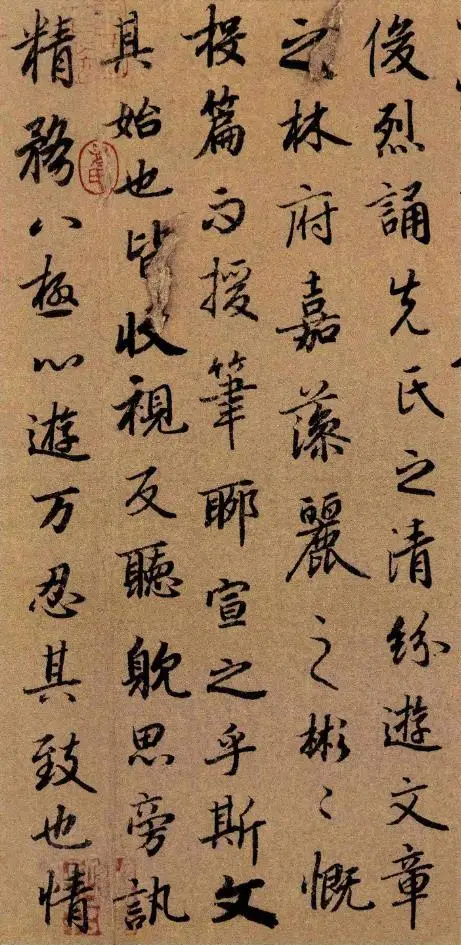 俊烈誦先氏之清紛遊文章
之林府嘉藻麗之彬〻慨
投篇而援筆聊宣之乎斯文
其始也皆收視反聽躭思旁訊
精務八極心遊万忍其致也情